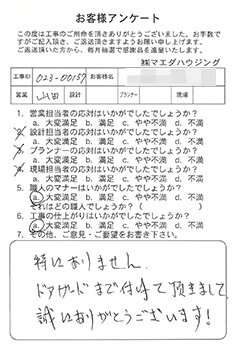 お客様アンケート
この度は工事のご用命を頂きありがとうございました。お手数で
すがご記入頂き、ご返送頂きますようお願い申し上げます。
ご返送頂いた方から、毎月抽選で感謝品を進呈いたします。
㈱マエダハウジング
工事ID 023-00157 お客様名
営業 山田 設計 プランナー 現場
1. 営業担当者の応対はいかがでしたでしょうか?
a. 大変満足 b. 満足 c. やや不満 d. 不満
2. 設計担当者の応対はいかがでしたでしょうか?
a. 大変満足 b. 満足 c. やや不満 d. 不満
3. プランナーの応対はいかがでしたでしょうか?
a. 大変満足 b. 満足 c. やや不満 d. 不満
4. 現場担当者の応対はいかがでしたでしょうか?
a. 大変満足 b. 満足 c. やや不満 d. 不満
5. 職人のマナーはいかがでしたでしょうか?
a. 大変満足 b. 満足 c. やや不満 d. 不満
それはどの職人でしょうか?( )
6. 工事の仕上がりはいかがでしたでしょうか?
a. 大変満足 b. 満足 c. やや不満 d. 不満
7. その他、ご意見・ご要望をお書き下さい。
特にありません。
ドアガードまで付けて頂きまして
誠にありがとうございます!